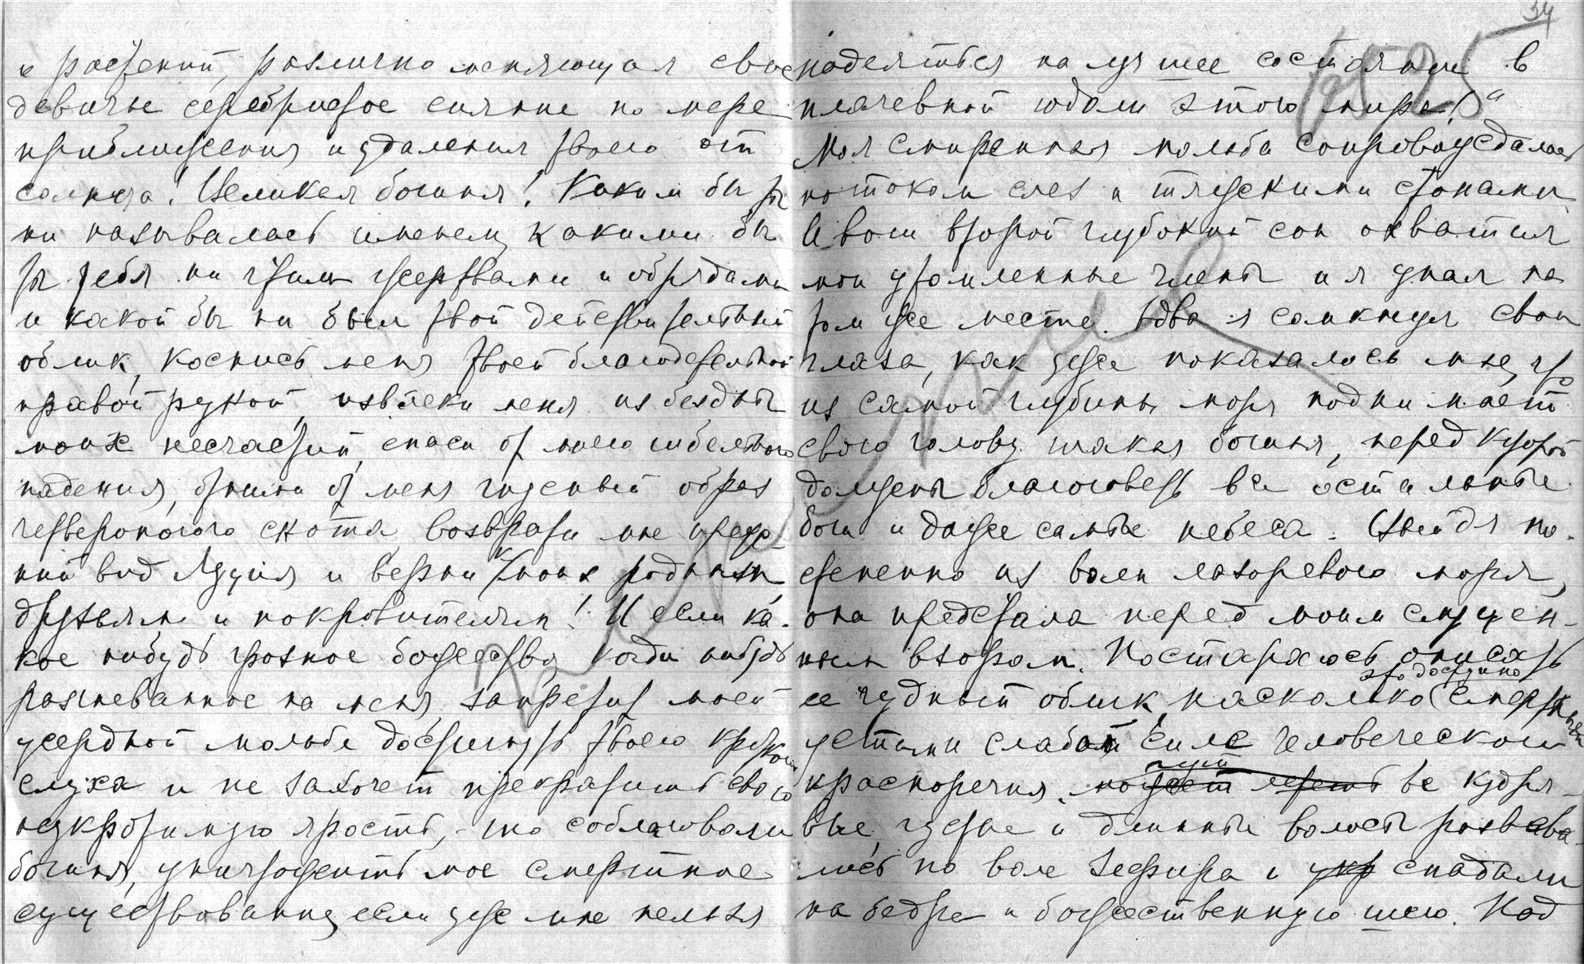 и растений, различно меняющая свое
девичье серебристое сияние по мере
приближения и удаления твоего от
солнца! Великая богиня! Каким бы ты
ни называлась именем, какими бы
ты тебя ни чтили жертвами и обрядами
и какой бы ни был твой действительный
облик, коснись меня твоей благодетельной
правой рукой, извлеки меня из бездны
моих несчастий, спаси от моего гибельного
падения, отними от меня гнусный образ
четвероногого скота возврати мне преж-
ний вид Луция и верни моих родным,
друзьям и покровителям! И если ка-
кое нибудь грозное божество, когда нибудь
разгневанное на меня, запретит моей
усердной мольбе достигнуть твоего кроткого
слуха и не захочет прекратить свою
неукротимую ярость, - то соблаговоли
богиня, уничтожить мое смертное
существование, если уже мне нельзя
34
надеяться на лучшее состояние в
плачевной юдоли этого мира!"
Моя смиренная мольба сопровождалась
потоком слез и тяжкими стонами
И вот второй глубокий сон охватил
мои утомленные члены и я упал на
том же месте. Едва я сомкнул свои
глаза, как уже показалось мне, что
из самой глубины моря поднимает
свою голову такая богиня, перед которой
должны благоговеть все остальные
боги и даже самые небеса. Выйдя по-
степенно из волн лазоревого моря,
она предстала перед моим смущен-
ным взором. Постараюсь описать
ее чудный облик, насколько это доступно смертными
устами слабой силе человеческого
красноречия. может Ее кудря-
вые, густые и длинные волосы развева-
лись по воле зефира и укр спадали
на бедра и божественную шею. Над